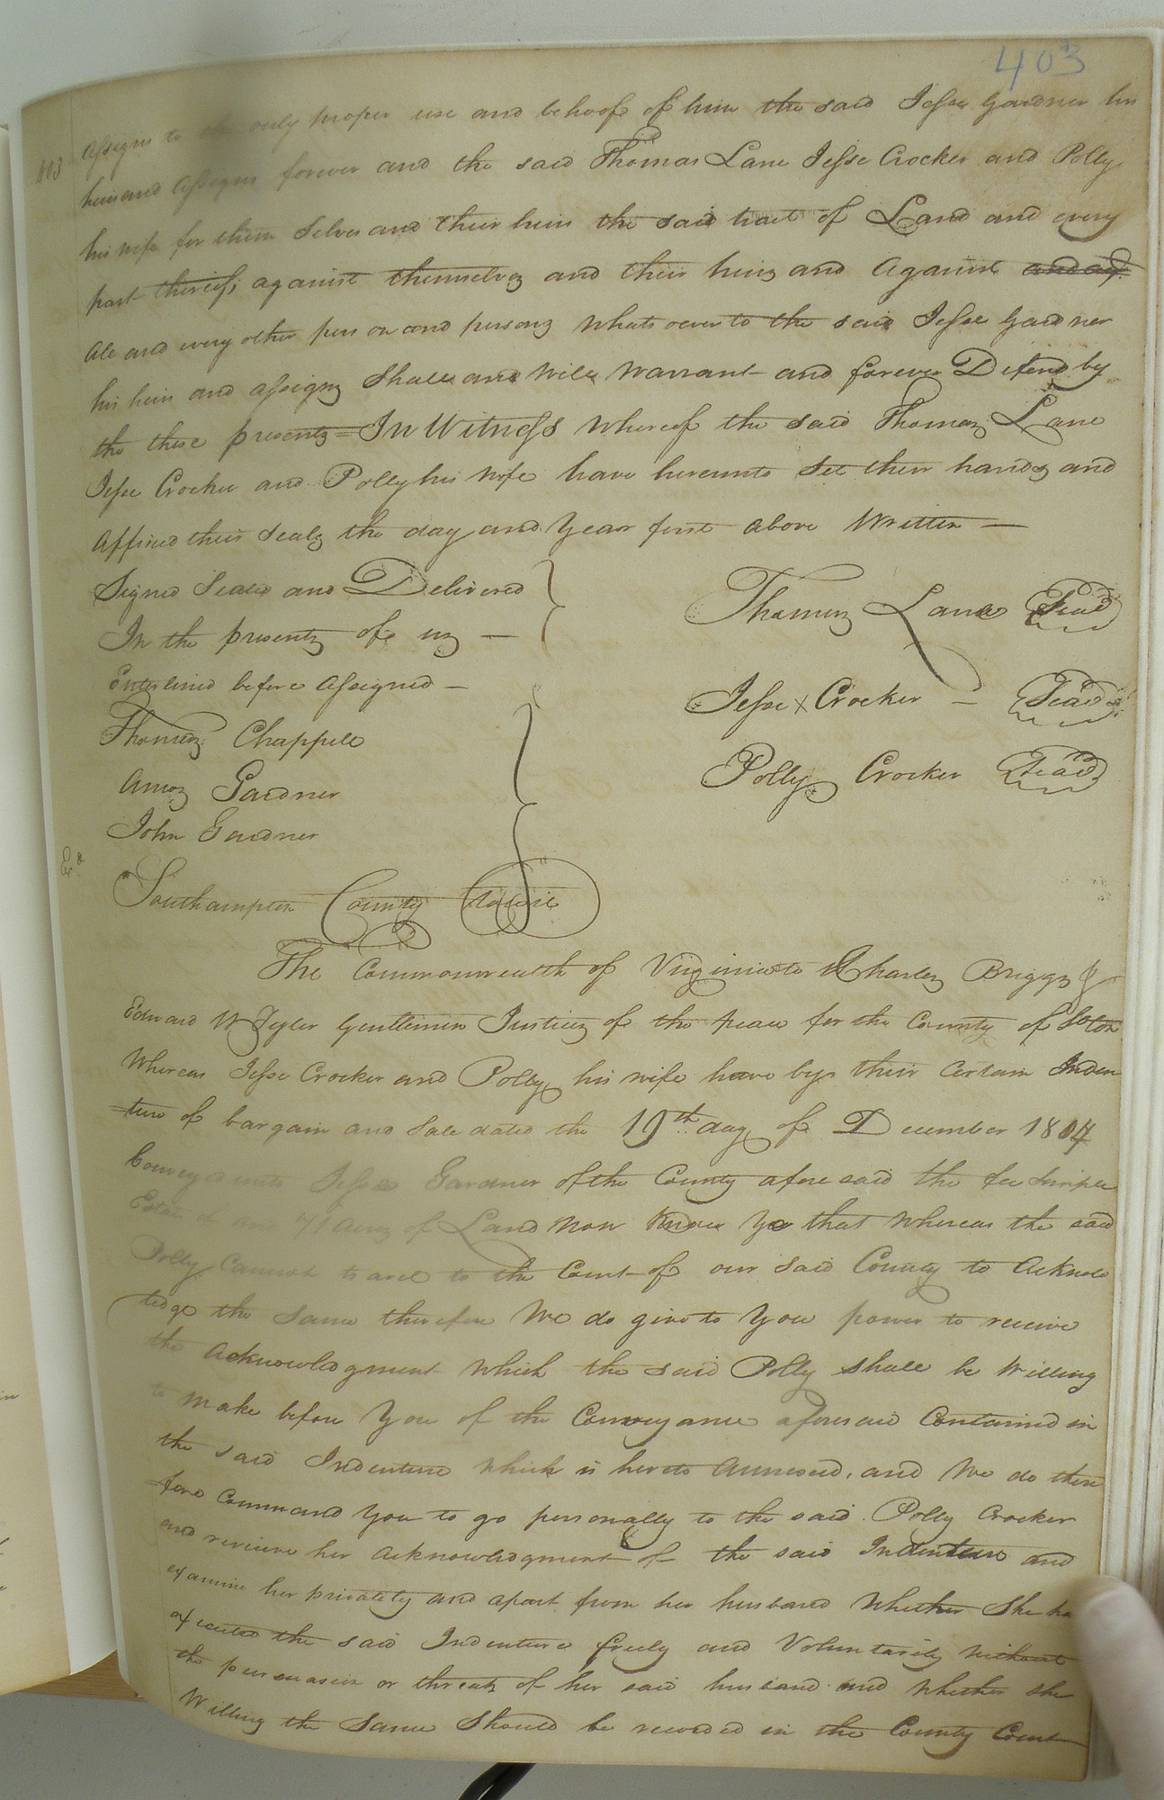 403
403
Assigns to the only proper use and behoofe of him the said Jesse Gardner his
heirs and Assigns forever and the said Thomas Lane Jesse Crocker and Polly
his wife for them Selves and their heirs the said tract of Land and every
part thereof; against themselves and their heirs and Against and all
All and every other person and persons whatsoever to the said Jesse Gardner
his heirs and assigns Shall and will Warrant and forever Defend by
the these presents = In Witness whereof the said Thomas Lane
Jesse Crocker and Polly his wife have hereunto Set their hands and
Affixed their Seals the day and Year first above Written —
Signed Sealed and Delivered
In the presents of us —
Enterlined before Assigned —
Thomas Lane Seal
Jesse X Crocker — Seal
Polly Crocker Seal
Thomas Chappell
Amos Gardner
John Gardner
Exd
Southampton County to wit
The Commonwealth of Virginia to Charles Briggs &
Edward W Tyler Gentlemen Justices of the peace for the County of Soton
Whereas Jesse Crocker and Polly his wife have by their Certain Inden
=ture of bargain and Sale dated the 19th day of December 1804
Conveyed unto Jesse Gardner of the County afore said the fee Simple
Estate of Acres of Land Now Know Ye that Whereas the said
Polly Cannot travel to the Court of our said County to Acknow
ledge the Same therefore We do give to You power to receive
the Acknowledgment which the said Polly Shall be Willing
to Make before You of the Conveyance aforesaid Contained in
the said Indenture which is hereto Annexed, and We do there
fore Command You to go personally to the said Polly Crocker
and receive her Acknowledgment of the said Indenture and
examine her privately and apart from her husband Whether She ha
executed the said Indenture freely and Voluntarily without
the persuasion or threats of her said husband and whether she
Willing the Same Should be recorded in the County Court